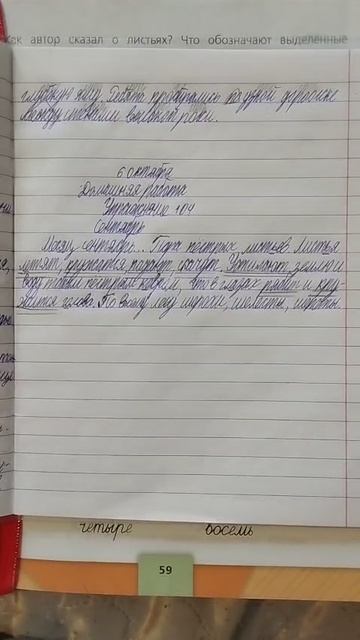 как автор сказал о листьях? Что обозначают выделенные
глубокую яму. Ребята пробирались по узкой дорожке
между стенами высокой ржи.
6 октября
Домашняя работа
Упражнение 104
Сентябрь
Месяц сентябрь... Пора пестрых листьев. Листья
летят, кружатся, ползут, скачут. Устилают землю и
воду таким пестрым ковром, что в глазах рябит и кру-
жится голова. По всему лесу шорохи, шелесты, шёпоты.
четыре восемь
59